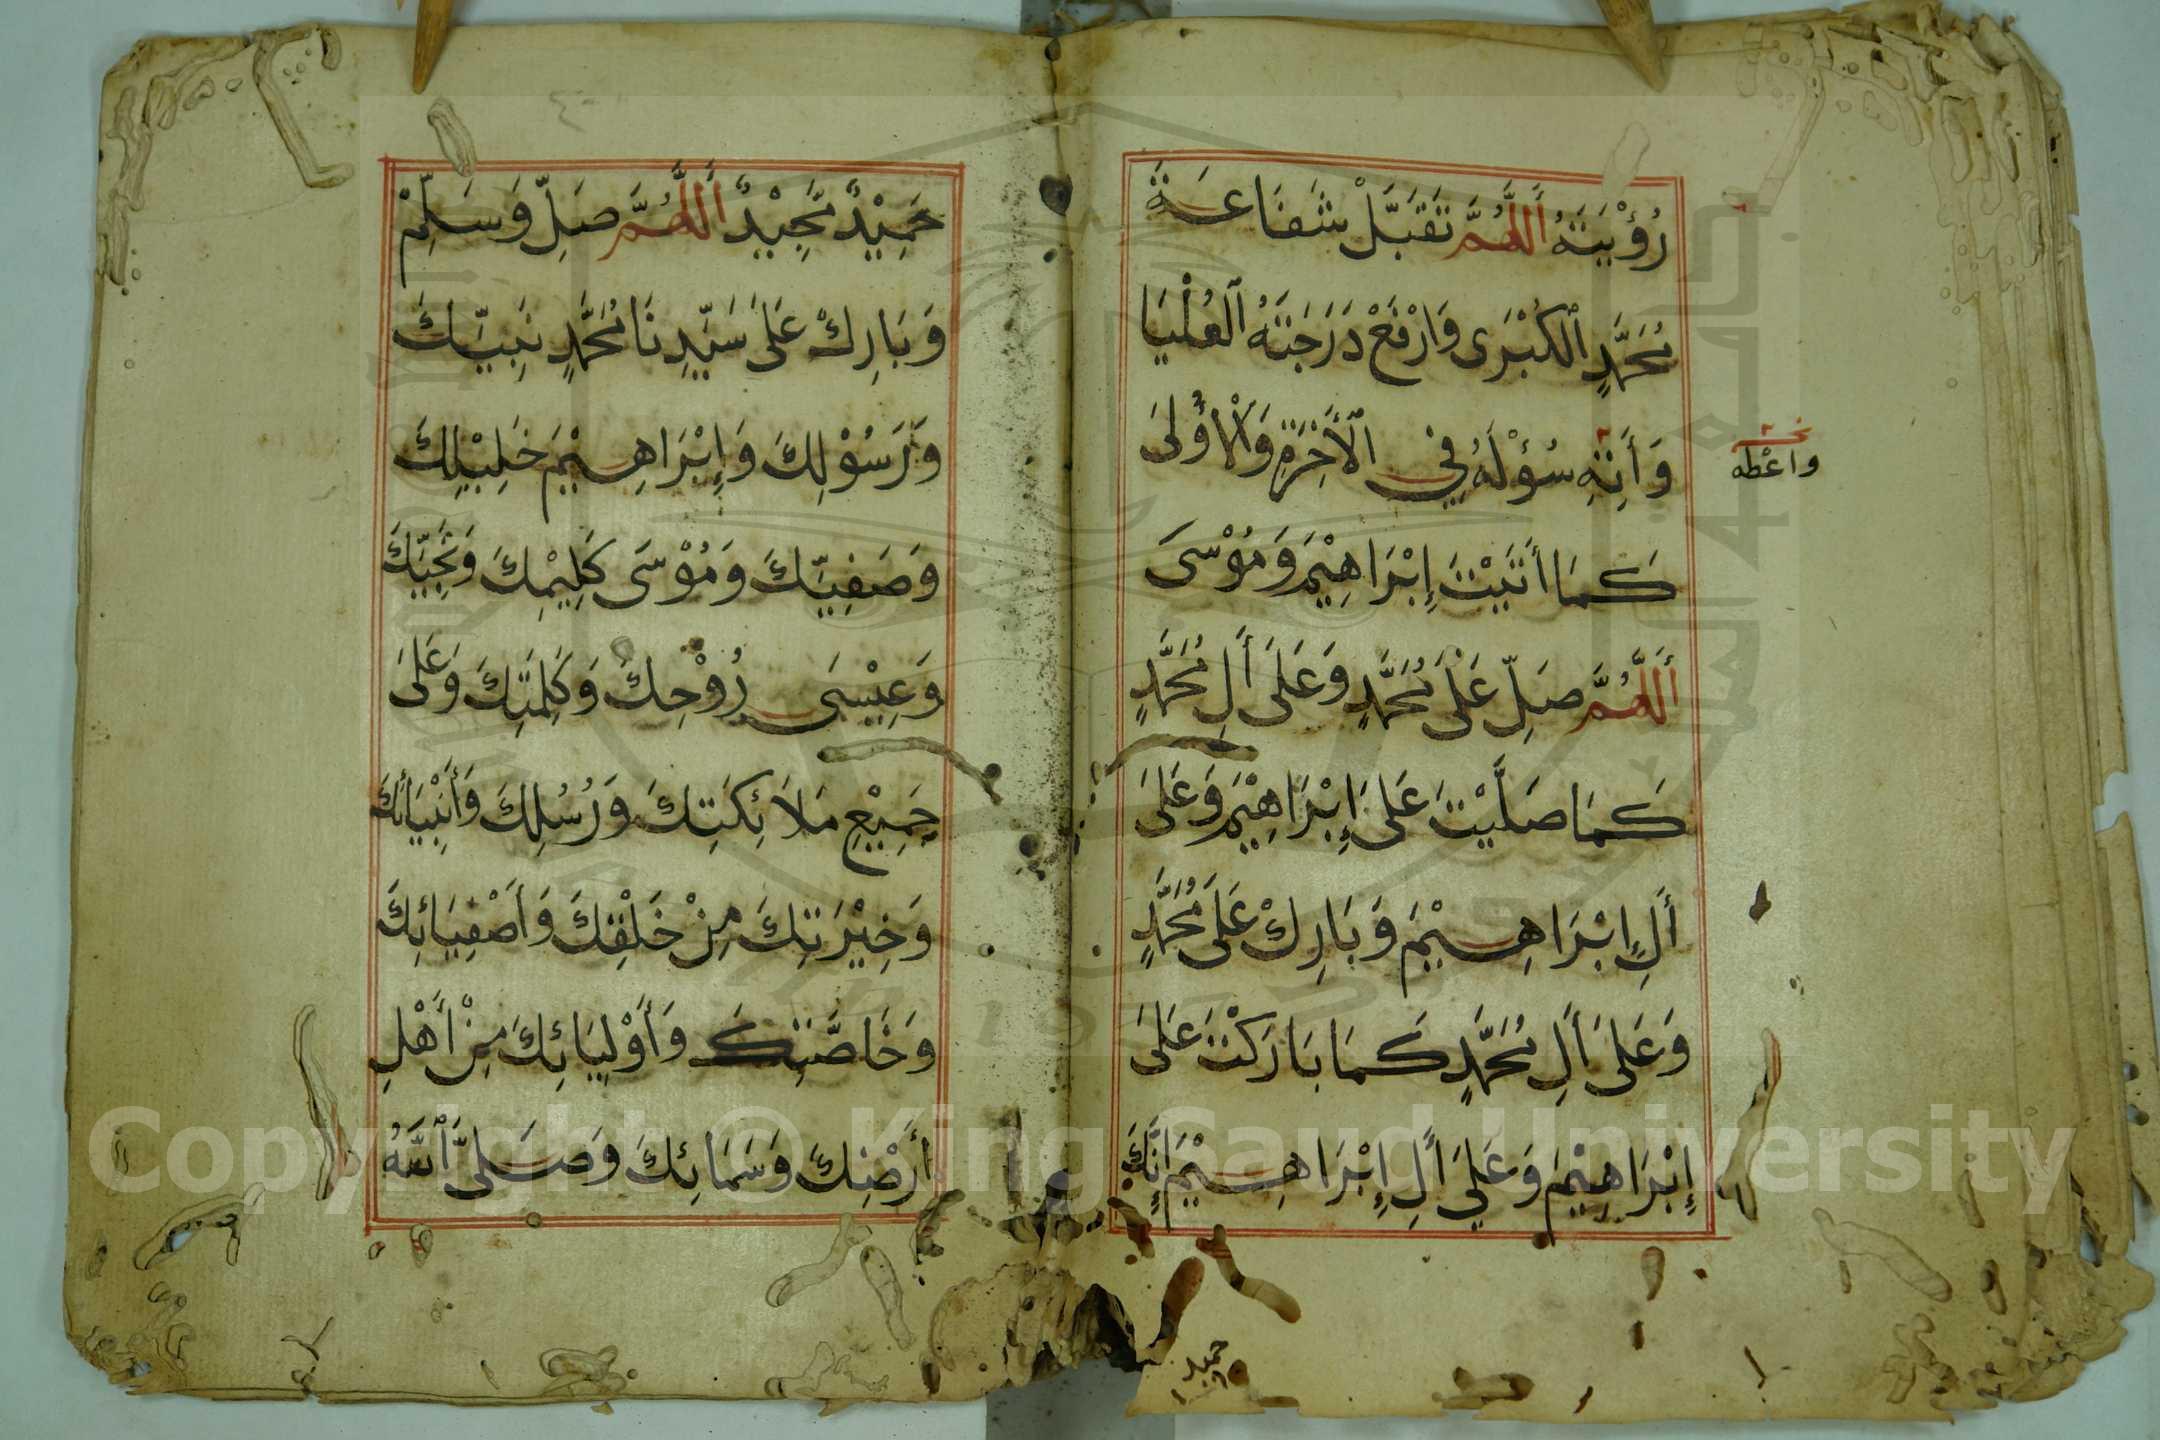 رُؤْيَتَهُ اَللّٰهُمَّ تَقَبَّلْ شَفَاعَةَ
مُحَمَّدٍ ٱلْكُبْرَى وَارْفَعْ دَرَجَتَهُ ٱلْعُلْيَا
وَأَتِهِ سُؤْلَهُ فِي ٱلْأَخِرَةِ وَالْأُولَى
كَمَا أَتَيْتَ إِبْرَاهِيْمَ وَمُوْسَى
اَللّٰهُمَّ صَلِّ عَلَى مُحَمَّدٍ وَعَلَى أَلِ مُحَمَّدٍ
كَمَا صَلَّيْتَ عَلَى إِبْرَاهِيْمَ وَعَلَى
أَلِ إِبْرَاهِيْمَ وَبَارِكْ عَلَى مُحَمَّدٍ
وَعَلَى أَلِ مُحَمَّدٍ كَمَا بَارَكْتَ عَلَى
إِبْرَاهِيْمَ وَعَلَى أَلِ إِبْرَاهِيْمَ إِنَّكَ
واعْطه
حميد
حَمِيْدٌ مَّجِيْدٌ اَللّٰهُمَّ صَلِّ وَسَلِّمْ
وَبَارِكْ عَلَى سَيِّدِنَا مُحَمَّدٍ نَبِيِّكَ
وَرَسُوْلِكَ وَإِبْرَاهِيْمَ خَلِيْلِكَ
وَصَفِيِّكَ وَمُوْسَى كَلِيْمِكَ وَنَجِيِّكَ
وَعِيْسَى رُوْحِكَ وَكَلِمَتِكَ وَعَلَى
جَمِيْعِ مَلاَئِكَتِكَ وَرُسُلِكَ وَأَنْبِيَائِكَ
وَخِيْرَتِكَ مِنْ خَلْقِكَ وَأَصْفِيَائِكَ
وَخَاصَّتِكَ وَأَوْلِيَائِكَ مِنْ أَهْلِ
أَرْضِكَ وَسَمَائِكَ وَصَلَّى ٱللّٰهُ
Copyright © King Saud University